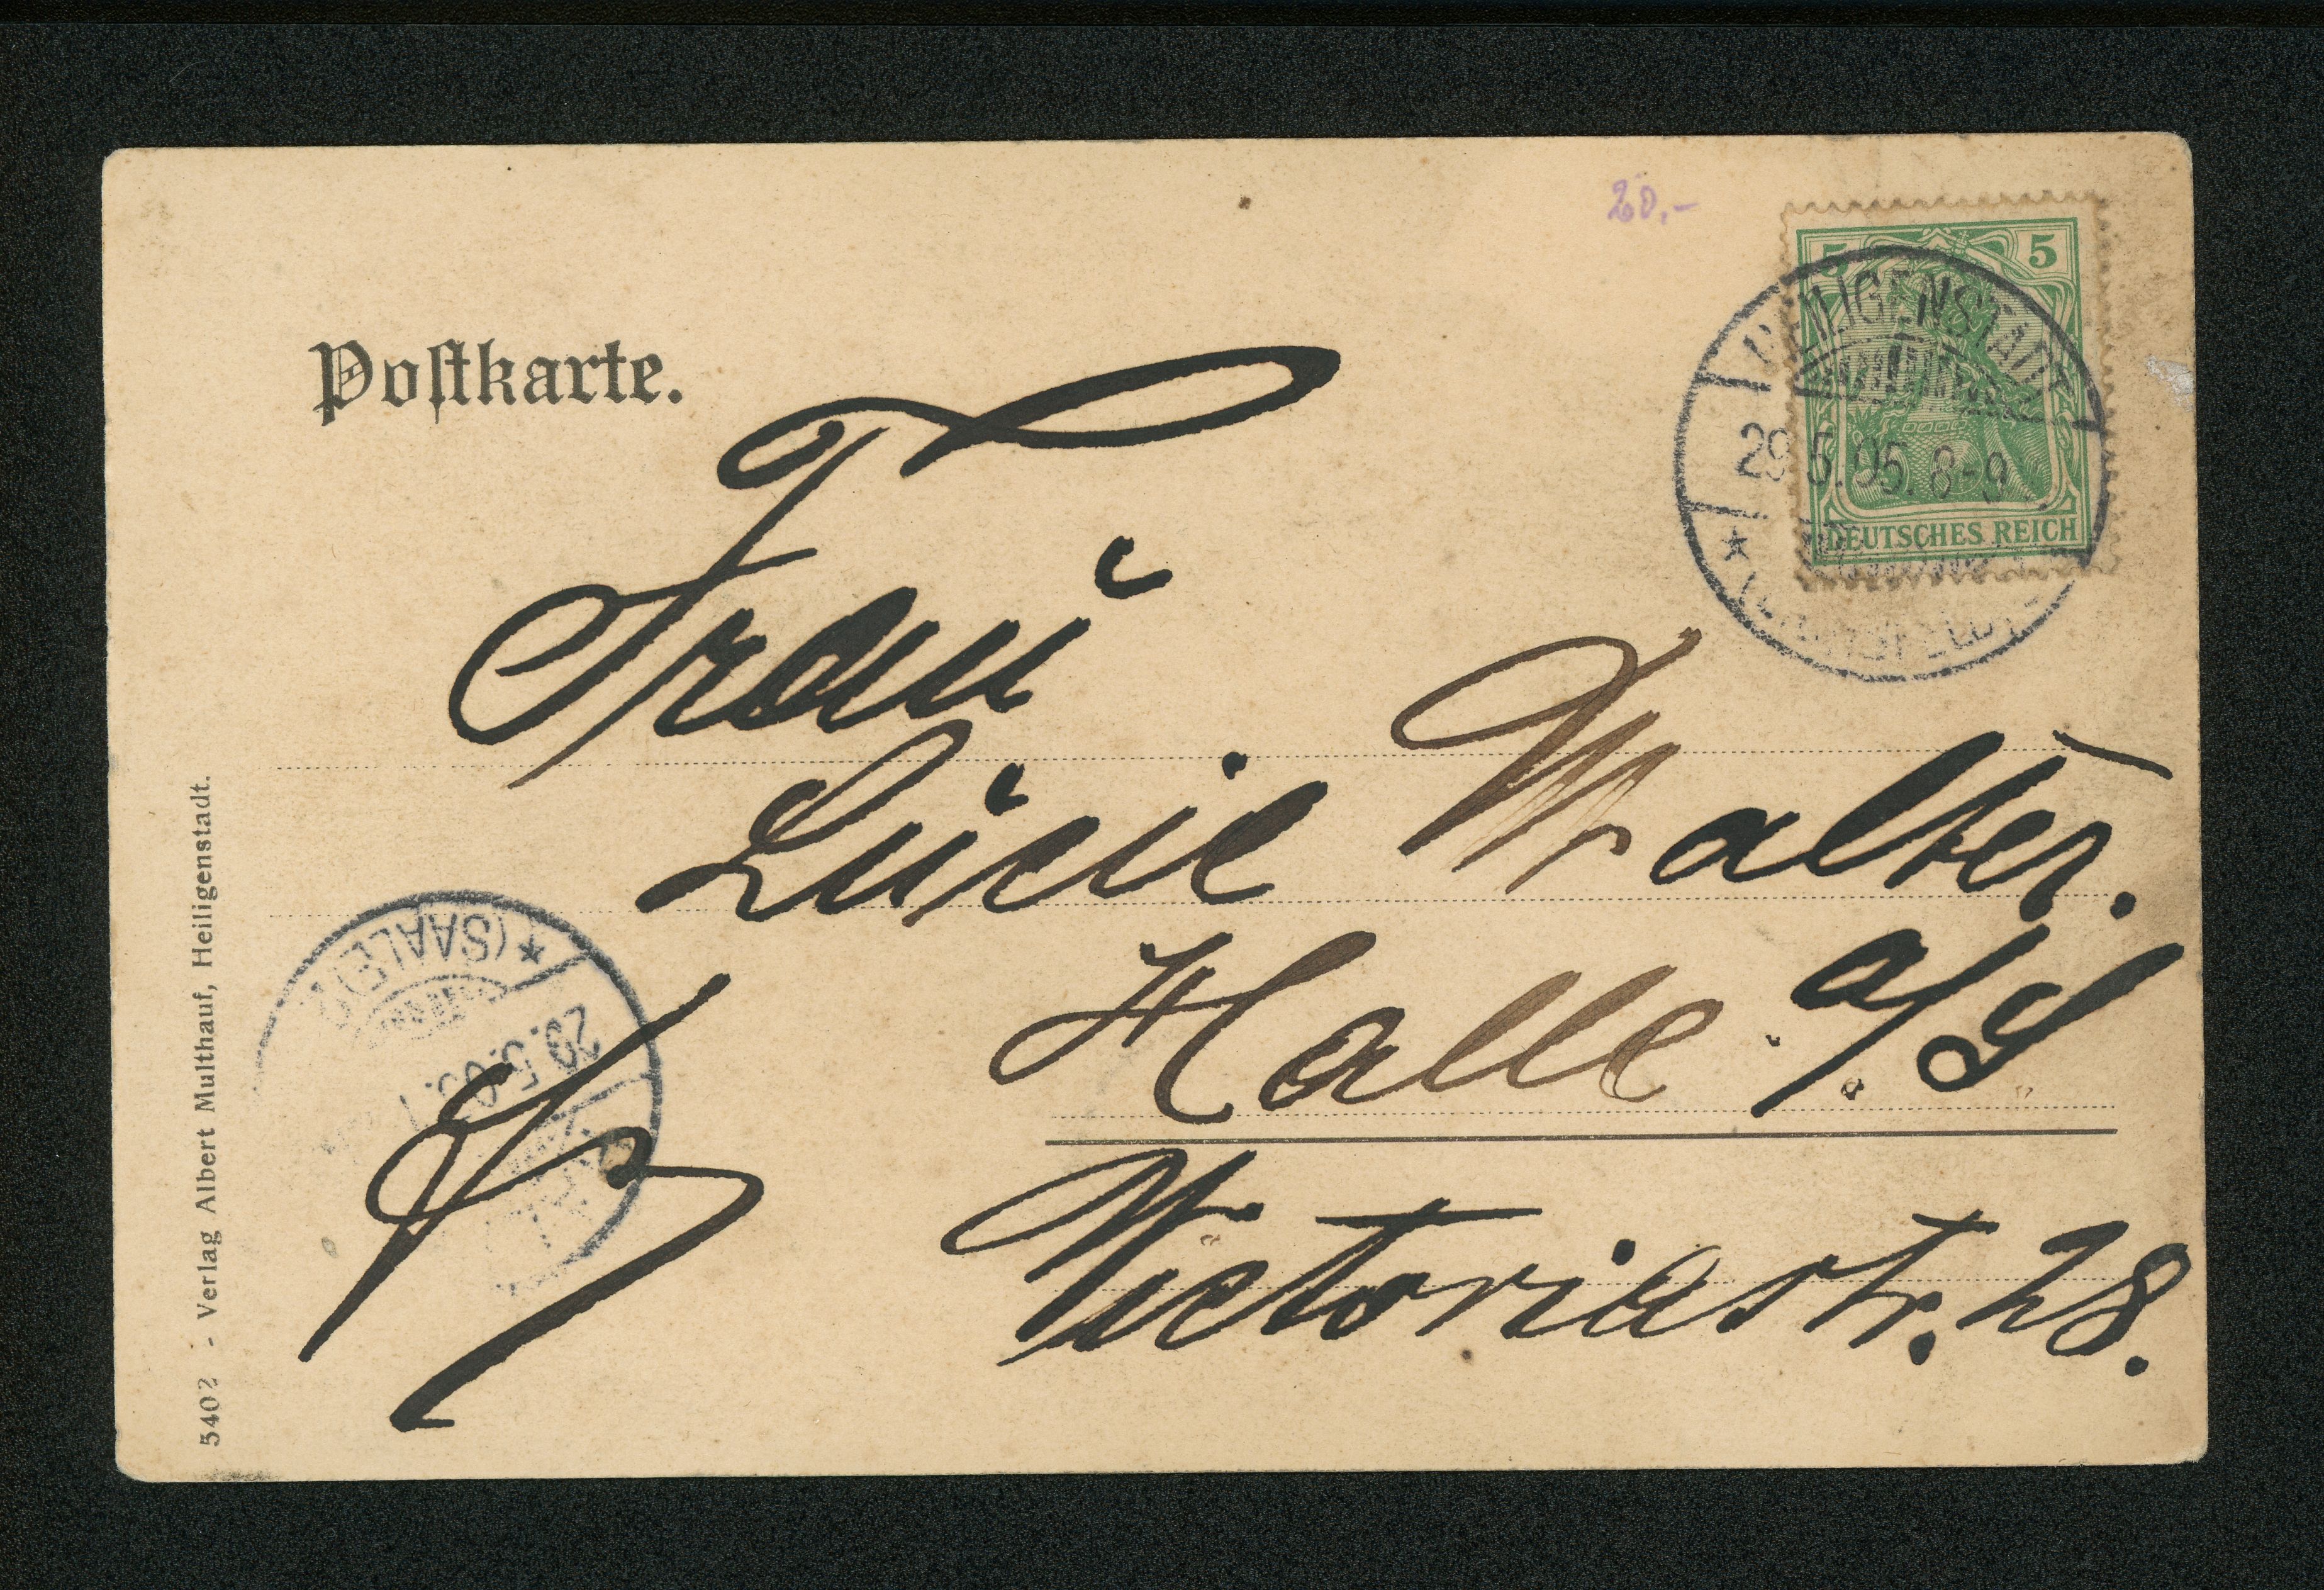 20.-
5 5
HEILIGENSTADT
29.5.05. 8-9
DEUTSCHES REICH
* (EICHSFELD)
Postkarte.
Frau
Lucie Walter.
Halle a/S
Victoriastr. 28.
* (SAALE)
29.5.05.
5402 - Verlag Albert Multhauf, Heiligenstadt.